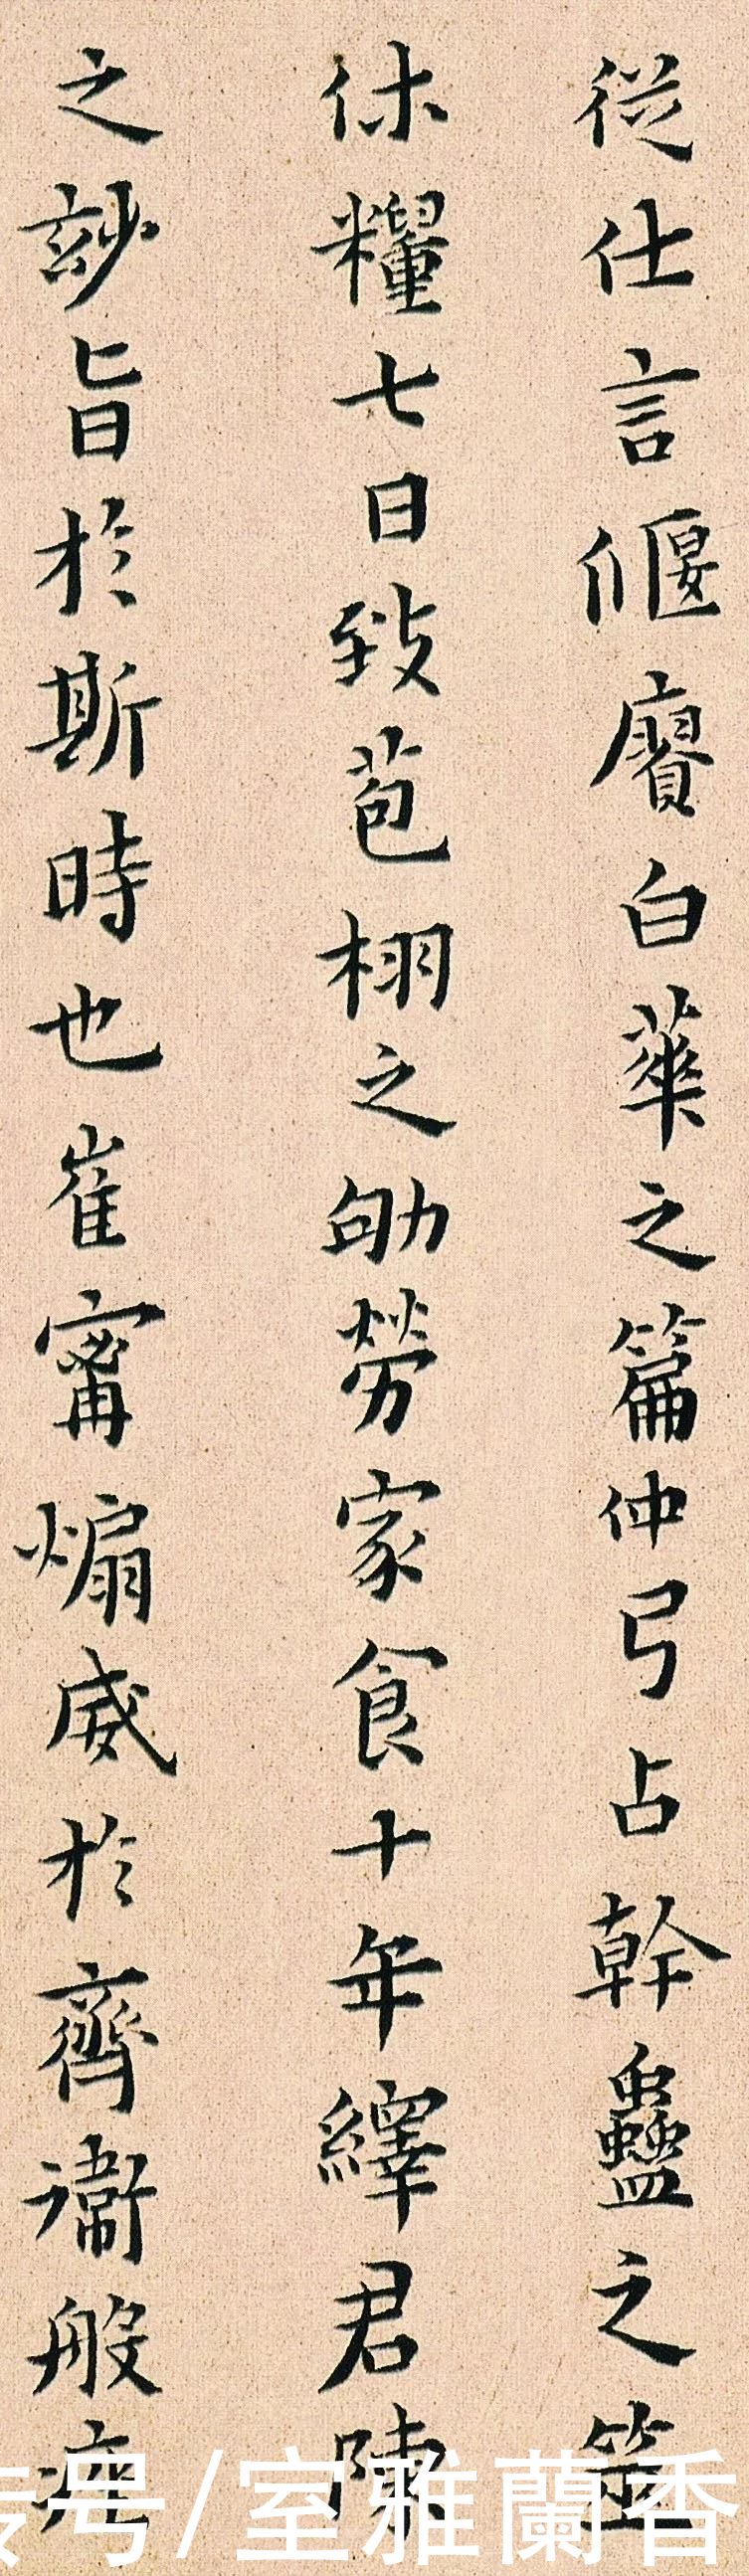 從仕言偃賡白華之篇仲弓占幹蠱之筮
休糧七日致苞栩之劬勞家食十年繹君陳
之玅旨於斯時也崔甯煽威於齊衛般
号/室雅蘭香